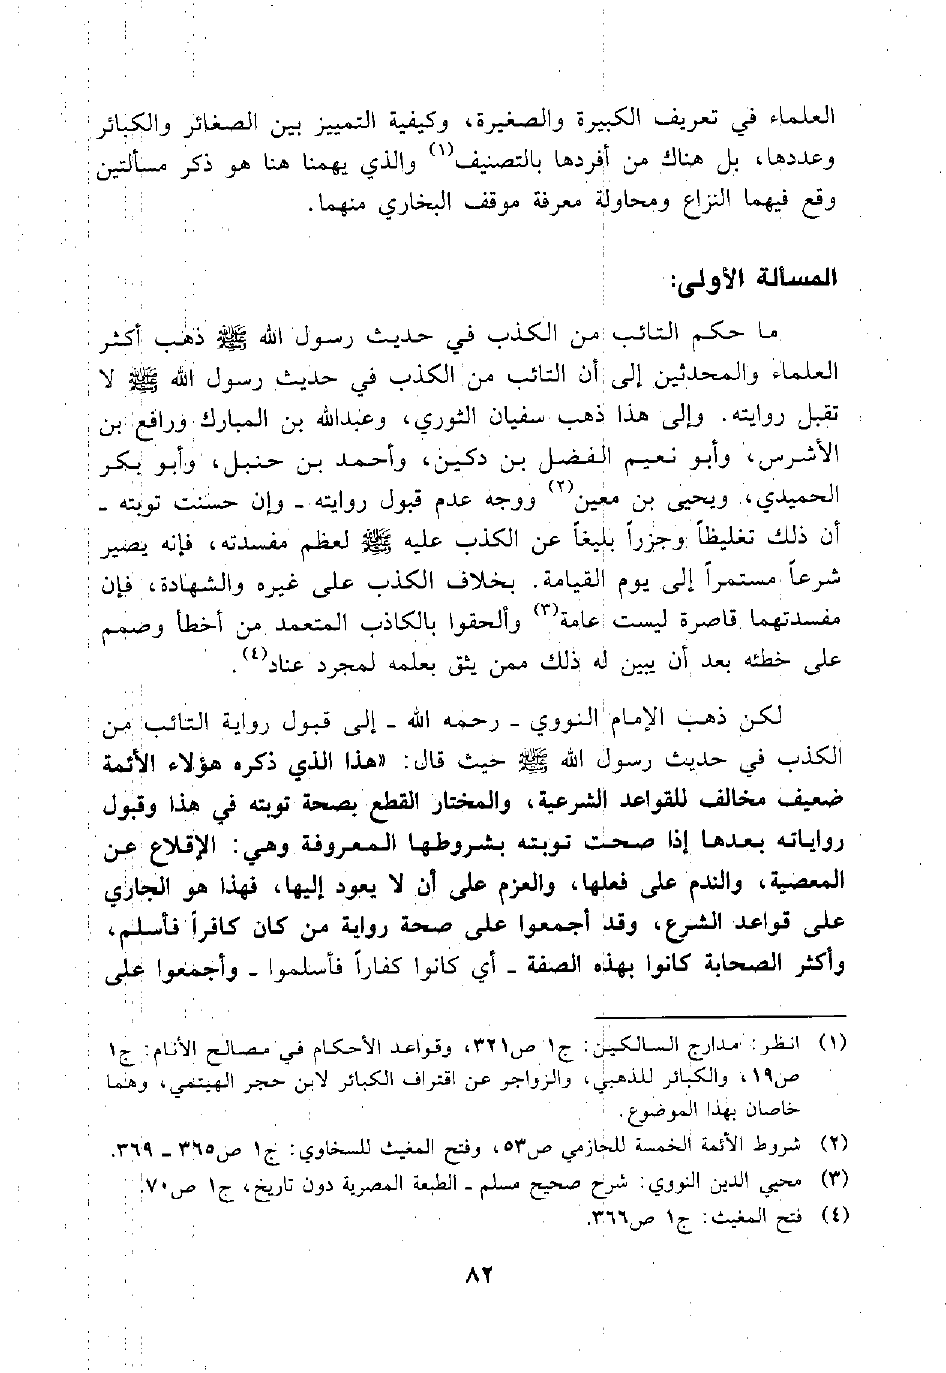 العلماء في تعريف الكبيرة والصغيرة، وكيفية التمييز بين الصغائر والكبائر
وعددها، بل هناك من أفردها بالتصنيف(١) والذي يهمنا هنا هو ذكر مسألتين
وقع فيهما النزاع ومحاولة معرفة موقف البخاري منهما.
المسألة الأولى:
ما حكم التائب من الكذب في حديث رسول الله ﷺ ذهب أكثر
العلماء والمحدثين إلى أن التائب من الكذب في حديث رسول الله ﷺ لا
تقبل روايته. وإلى هذا ذهب سفيان الثوري، وعبدالله بن المبارك ورافع بن
الأشرس، وأبو نعيم الفضل بن دكين، وأحمد بن حنبل، وأبو بكر
الحميدي، ويحيى بن معين(٢) ووجه عدم قبول روايته ـ وإن حسنت توبته ـ
أن ذلك تغليظاً وجزراً بليغاً عن الكذب عليه ﷺ لعظم مفسدته، فإنه يصير
شرعاً مستمراً إلى يوم القيامة. بخلاف الكذب على غيره والشهادة، فإن
مفسدتهما قاصرة ليست عامة(٣) وألحقوا بالكاذب المتعمد من أخطأ وصمم
على خطئه بعد أن يبين له ذلك ممن يثق بعلمه لمجرد عناد(٤).
لكن ذهب الإمام النووي ـ رحمه الله ـ إلى قبول رواية التائب من
الكذب في حديث رسول الله ﷺ حيث قال: «هذا الذي ذكره هؤلاء الأئمة
ضعيف مخالف للقواعد الشرعية، والمختار القطع بصحة توبته في هذا وقبول
رواياته بعدها إذا صحت توبته بشروطها المعروفة وهي: الإقلاع عن
المعصية، والندم على فعلها، والعزم على أن لا يعود إليها، فهذا هو الجاري
على قواعد الشرع، وقد أجمعوا على صحة رواية من كان كافراً فأسلم،
وأكثر الصحابة كانوا بهذه الصفة ـ أي كانوا كفاراً فأسلموا ـ وأجمعوا على
(١) انظر: مدارج السالكين: ج١ ص٣٢١، وقواعد الأحكام في مصالح الأنام: ج١
ص١٩، والكبائر للذهبي، والزواجر عن اقتراف الكبائر لابن حجر الهيتمي، وهما
خاصان بهذا الموضوع.
(٢) شروط الأئمة الخمسة للحازمي ص٥٣، وفتح المغيث للسخاوي: ج١ ص٣٦٥ ـ ٣٦٩.
(٣) محيي الدين النووي: شرح صحيح مسلم ـ الطبعة المصرية دون تاريخ، ج١ ص٧٠.
(٤) فتح المغيث: ج١ ص٣٦٦.
٨٢